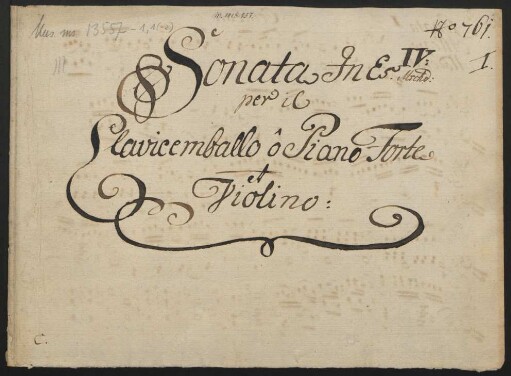 Mus. ms. 1355
No 761.
I.
Sonata In Es. IV:
per il
Clavicemballo ô Piano Forte
et
Violino:
C.